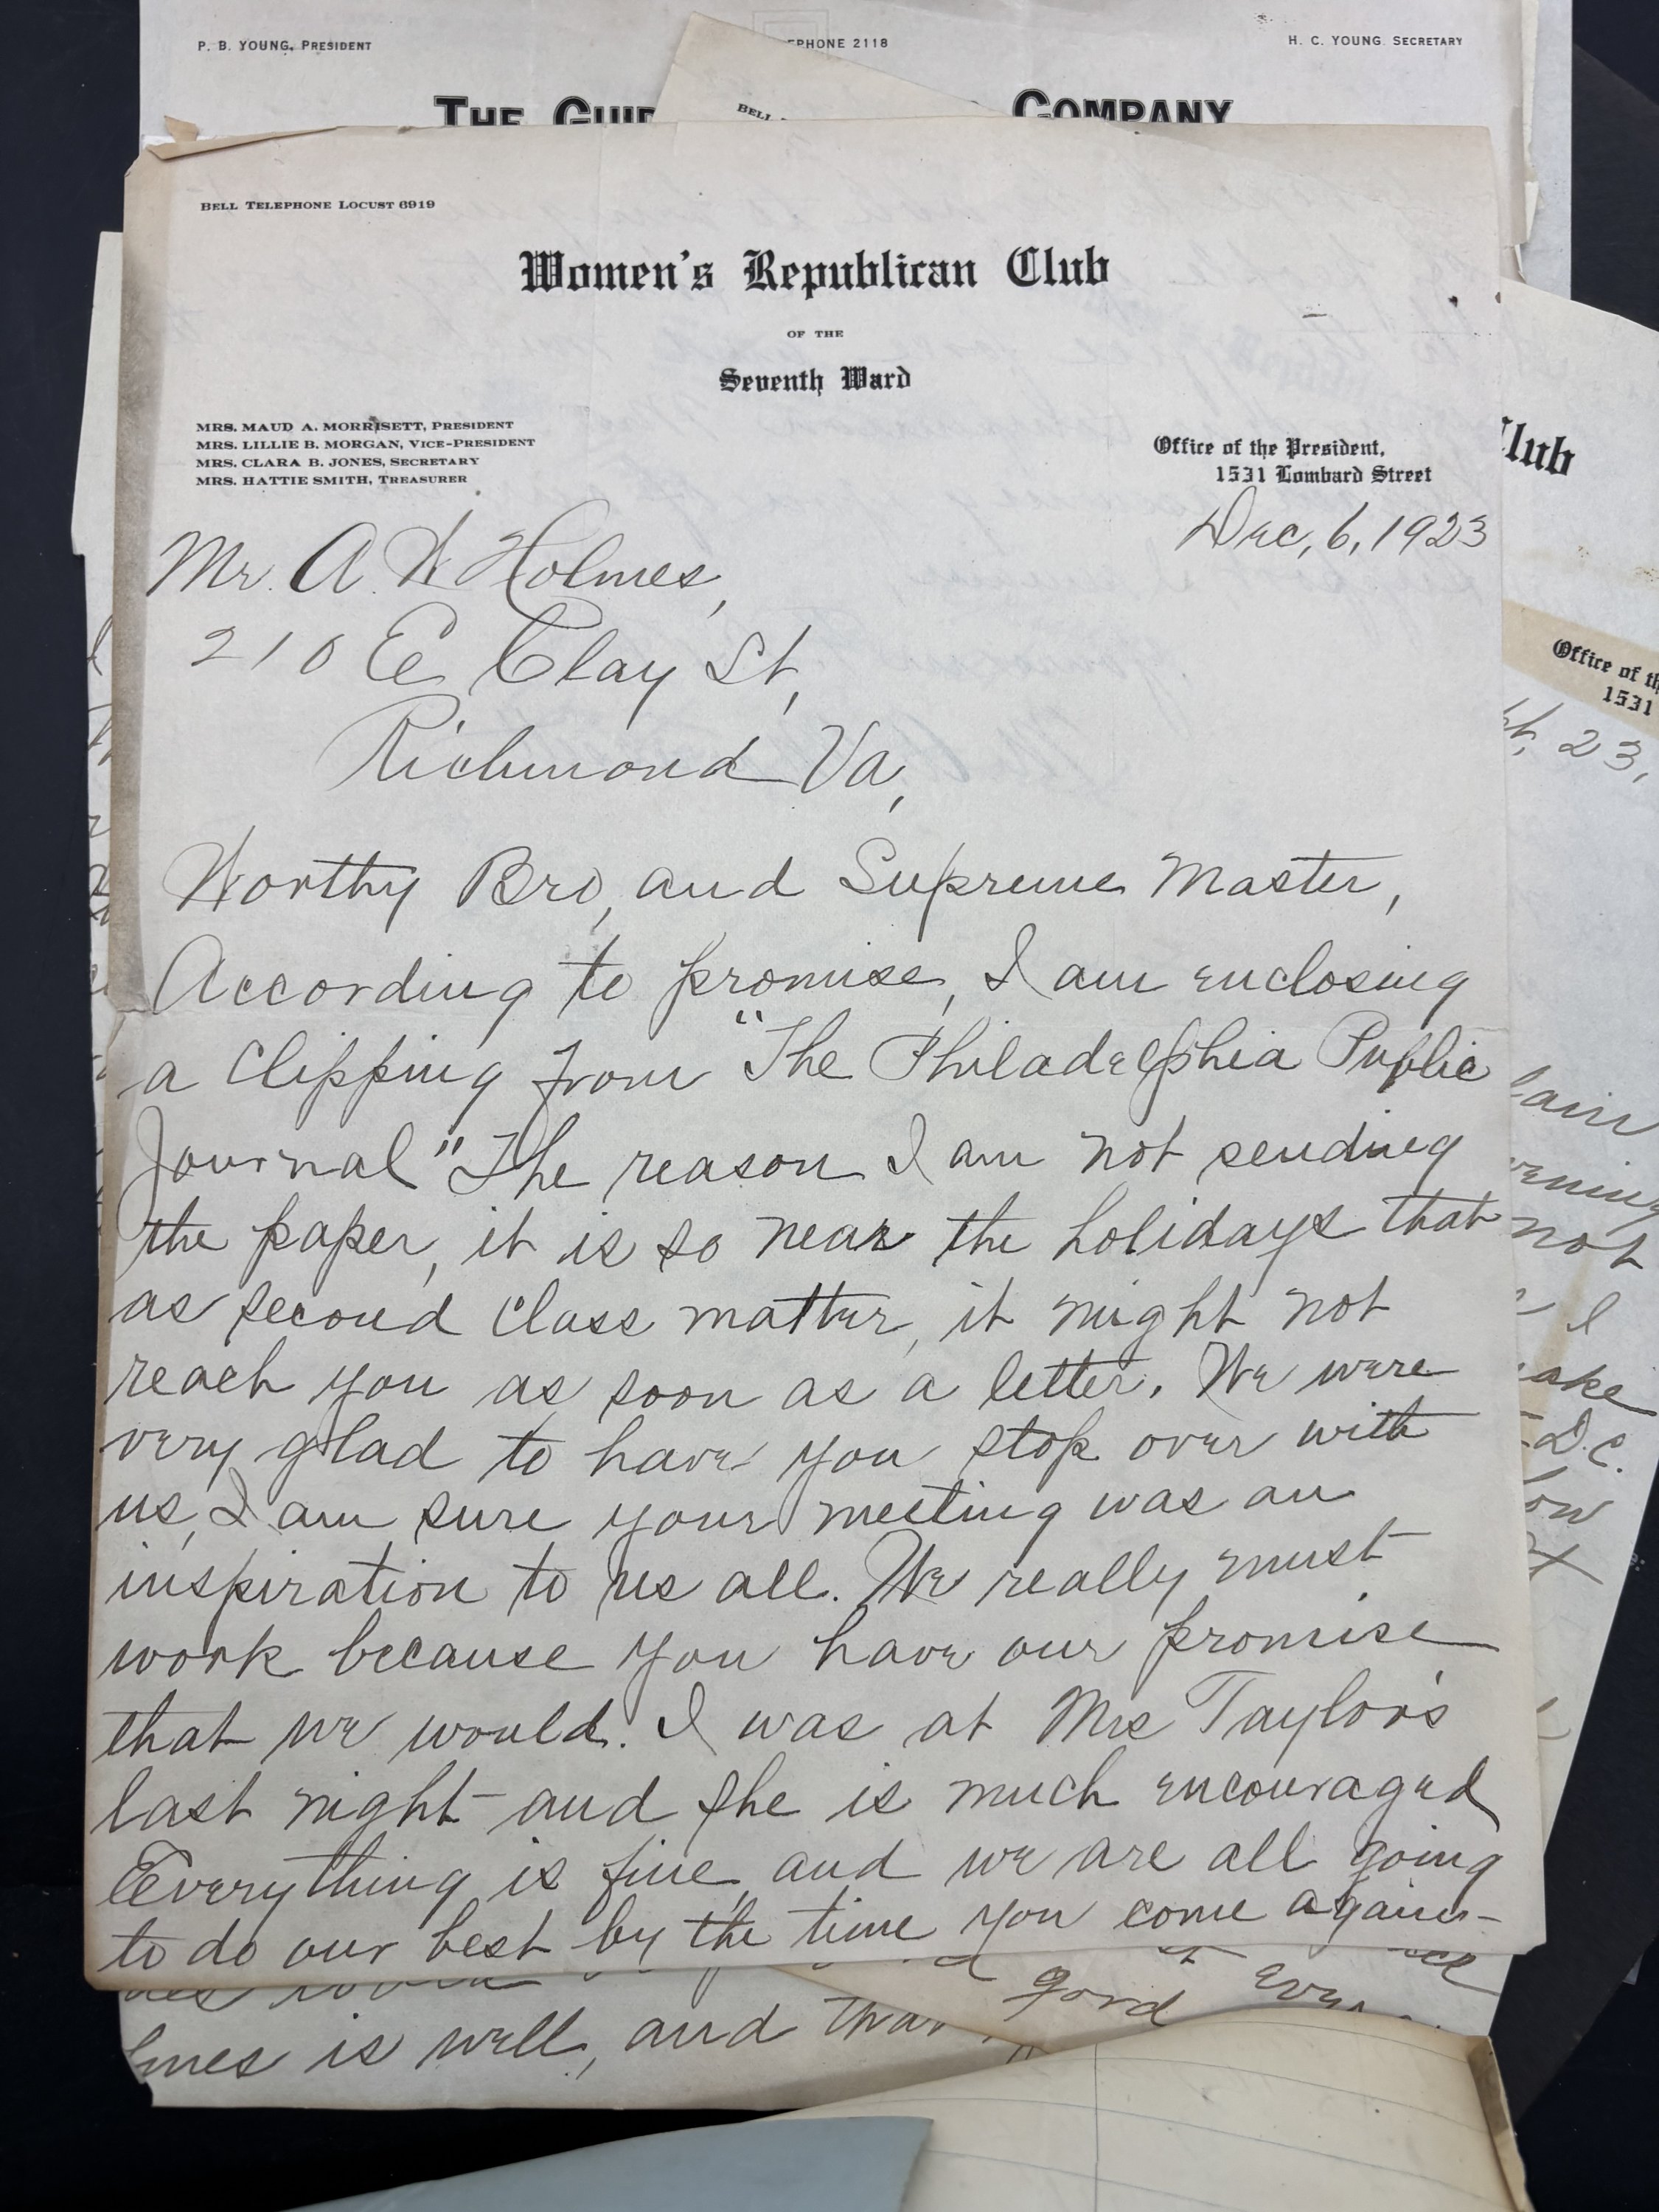 P. B. YOUNG, PRESIDENT
PHONE 2118
H. C. YOUNG, SECRETARY
THE
COMPANY
BELL
BELL TELEPHONE LOCUST 6919
Women's Republican Club
OF THE
Seventh Ward
MRS. MAUD A. MORRISETT, PRESIDENT
MRS. LILLIE B. MORGAN, VICE-PRESIDENT
MRS. CLARA B. JONES, SECRETARY
MRS. HATTIE SMITH, TREASURER
Office of the President,
1531 Lombard Street
Dec, 6, 1923
Mr. A. W Holmes,
210 E Clay St,
Richmond Va,
Worthy Bro, and Supreme Master,
According to promise, I am enclosing
a clipping from "The Philadelphia Public
Journal" The reason I am not sending
the paper, it is so near the holidays that
as second class matter, it might not
reach you as soon as a letter. We were
very glad to have you stop over with
us, I am sure your meeting was an
inspiration to us all. We really must
work because you have our promise
that we would. I was at Mrs Taylor's
last night and she is much encouraged
Everything is fine, and we are all going
to do our best by the time you come again-
is well, and
good
Club
Office of
1531
23,
not
I
D.C.